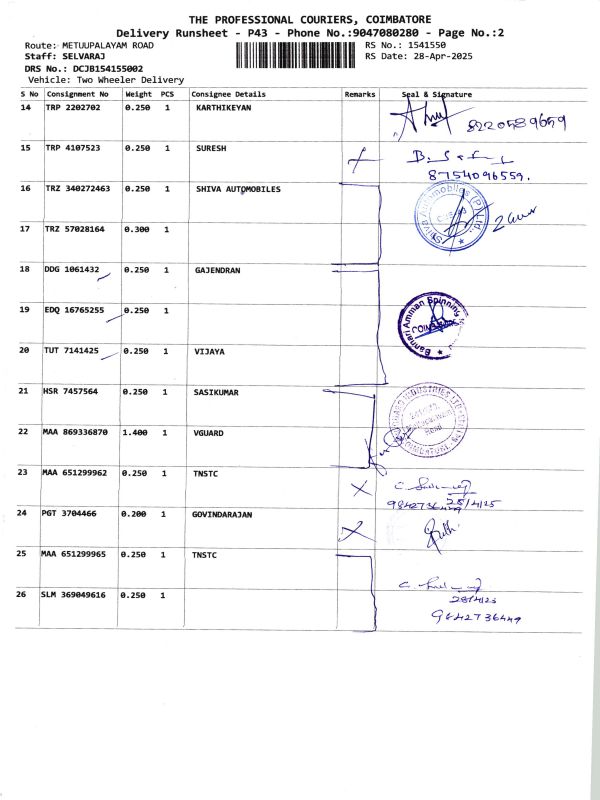 THE PROFESSIONAL COURIERS, COIMBATORE
Delivery Runsheet - P43 - Phone No.:9047080280 - Page No.:2
Route: METUUPALAYAM ROAD RS No.: 1541550
Staff: SELVARAJ RS Date: 28-Apr-2025
DRS No.: DCJB154155002
Vehicle: Two Wheeler Delivery
S No Consignment No Weight PCS Consignee Details Remarks Seal & Signature
14 TRP 2202702 0.250 1 KARTHIKEYAN
8220589659
15 TRP 4107523 0.250 1 SURESH
8754096559.
16 TRZ 340272463 0.250 1 SHIVA AUTOMOBILES
Shiva Automobiles (P) Ltd.
17 TRZ 57028164 0.300 1
18 DDG 1061432 0.250 1 GAJENDRAN
19 EDQ 16765255 0.250 1
Bannari Amman Spinning
20 TUT 7141425 0.250 1 VIJAYA
21 HSR 7457564 0.250 1 SASIKUMAR
22 MAA 869336870 1.400 1 VGUARD
23 MAA 651299962 0.250 1 TNSTC
28/4/25
9842736449
24 PGT 3704466 0.200 1 GOVINDARAJAN
25 MAA 651299965 0.250 1 TNSTC
26 SLM 369049616 0.250 1
9842736449